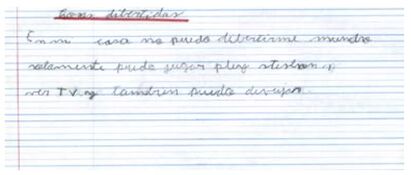 cosas dibertidas
En mi casa no puedo dibertirme mucho
solamente puedo jugar play steshon o
ver TV y tambien puedo devujar.